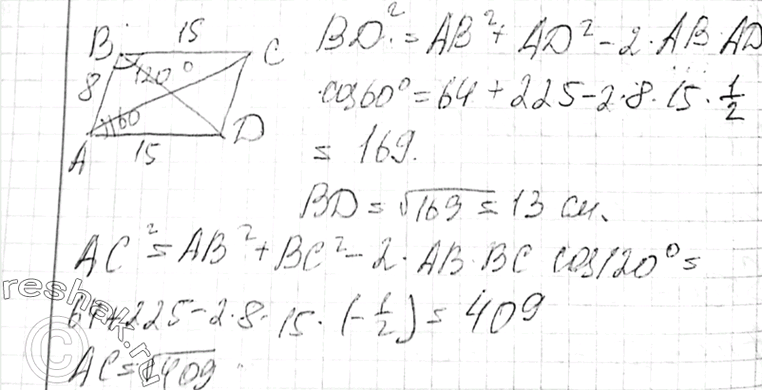 15
B C
8 120°
60
A 15 D
BD² = AB² + AD² - 2·AB·AD
·cos60° = 64 + 225 - 2·8·15·1/2
= 169.
BD = √169 = 13 см.
AC² = AB² + BC² - 2·AB·BC cos120° =
64 + 225 - 2·8·15·(-1/2) = 409
AC = √409
reshak.ru
©